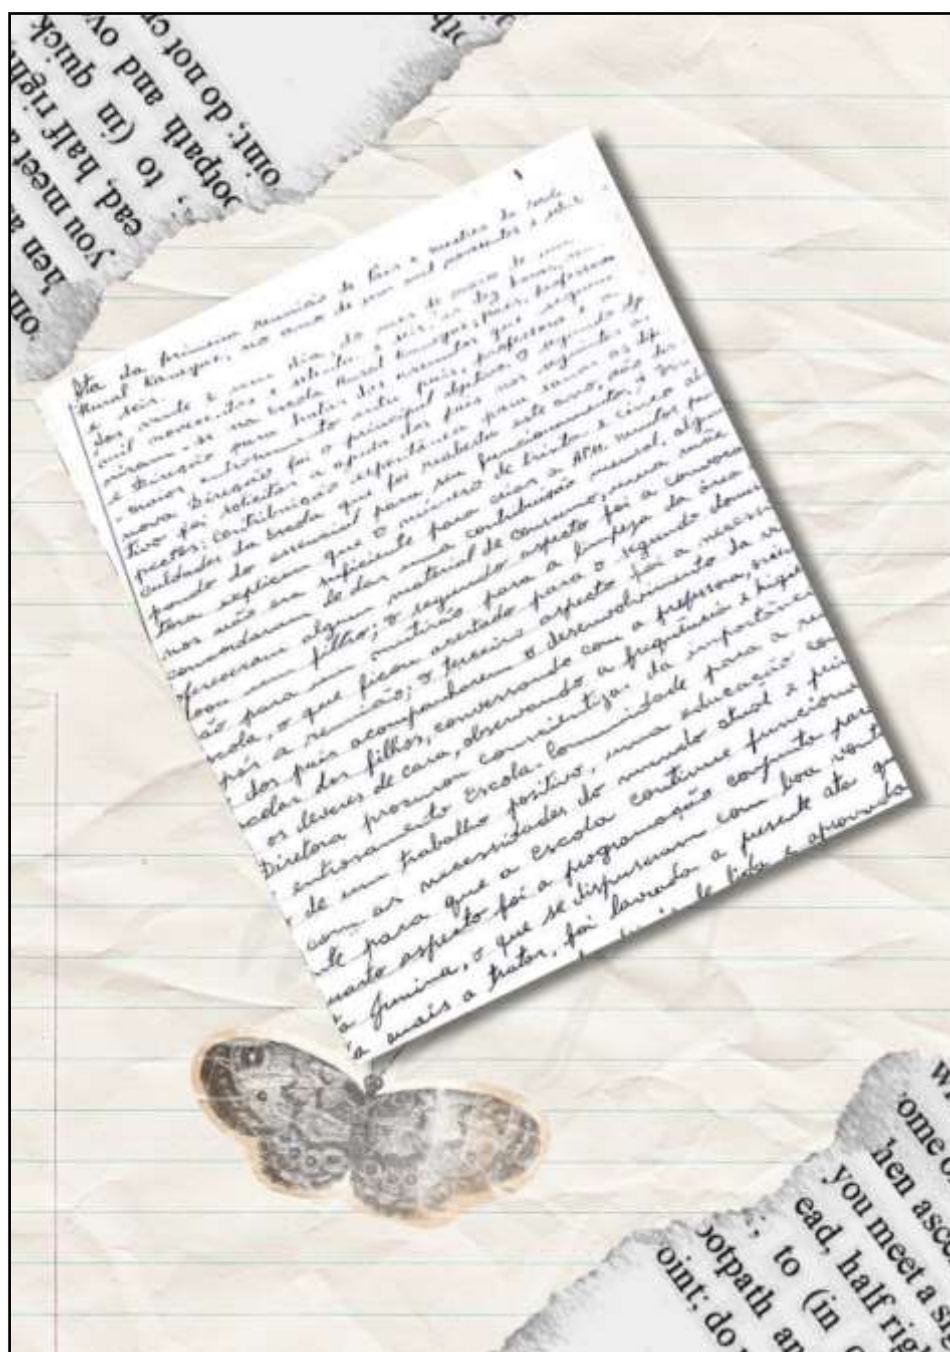 oint; do not cr
ootpath and ov
; to (in quick
ead, half right
you meet a
hen a
om
Ata da primeira reunião de Pais e mestres da
Rural, no ano de um mil novecentos e
e seis.
Aos vinte e um dia, do mês de março de um
mil novecentos e setenta e seis, às dez horas, reu-
niram-se na Escola Rural, Pais, Professores
e Direção para tratar dos assuntos que seguem:
maior entrosamento entre pais, professores e a
nova Direção foi o principal objetivo. O segundo obje
tivo foi solicitar a ajuda dos pais nos seguintes as
pectos: contribuição espontânea para sanar as difi
culdades da Escola que foi reaberta este ano, não dis
pondo do essencial para seu funcionamento. A
tora explicou que o número de trinta e cinco alu
nos não era suficiente para criar a APM. Muitos
concordaram de dar uma contribuição mensal, algun
ofereceram algum material de consumo, uma mãe
doou um filtro; o segundo aspecto foi a convoca
ão para um mutirão para a limpeza da área
cola, o que ficou acertado para o segundo domin
pós a reunião; o terceiro aspecto foi a necessi
dos pais acompanharem o desenvolvimento da
scolar dos filhos, conversando com a professora,
os deveres de casa, observando a frequência e higie
Diretora procurou conscientizar da importância
entrosamento Escola-Comunidade para a
de um trabalho positivo, uma educação con
com as necessidades do mundo atual e prin
nte para que a Escola continue funciona
uarto aspecto foi a programação conjunta para
a Junina, o que se dispuseram com boa vonta
a mais a tratar, foi lavrada a presente ata qu
de lida e aprovada
ome o
hen asce
you meet a si
ead, half righ
; to (in
ootpath an
oint; do